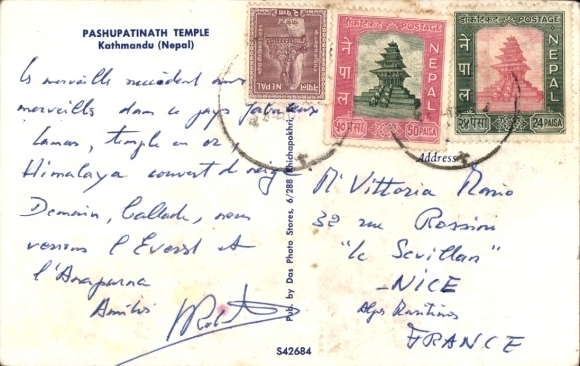 PASHUPATINATH TEMPLE
Kathmandu (Nepal)
Les merveilles succèdent aux
merveilles dans ce pays fabuleux
Lamas, temple en or,
Himalaya couvert de neige
Demain, nous
verrons l'Everest et
l'Anapurna
Amitiés
Pub. by Das Photo Stores, 6/288
S42684
नेपाल
NEPAL
POSTAGE
नेपाल
NEPAL
५०पैसा
50 PAISA
POSTAGE
नेपाल
NEPAL
२४पैसा
24 PAISA
Address
Mr Vittoria Mario
32 rue Rossini
"Le Sevillan"
-NICE
Alpes Maritimes
FRANCE